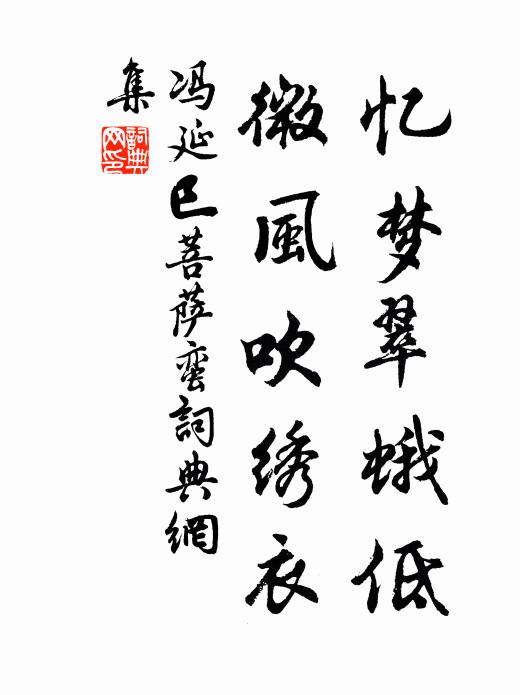 忆梦翠蛾低
微風吹绣衣
冯延巳菩萨蛮詞典網
集
詞典網印